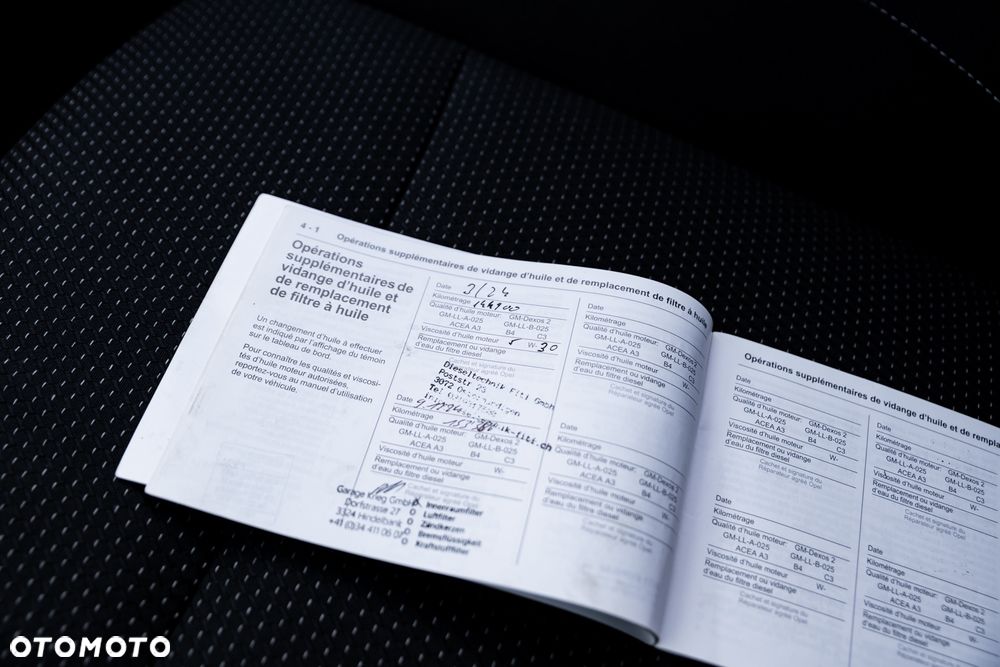 4 - 1
Opérations supplémentaires de vidange d'huile et de remplacement de filtre à huile
Opérations
supplémentaires de
vidange d'huile et
de remplacement
de filtre à huile
Un changement d'huile à effectuer
est indiqué par l'affichage du témoin
sur le tableau de bord.
Pour connaître les qualités et viscosi-
tés d'huile moteur autorisées,
reportez-vous au manuel d'utilisation
de votre véhicule.
Date 3/24
Kilométrage
Qualité d'huile moteur: GM-Dexos 2
GM-LL-A-025 GM-LL-B-025
ACEA A3 B4 C3
Viscosité d'huile moteur W- 30
Remplacement ou vidange
d'eau du filtre diesel
Cachet et signature du
Réparateur agréé Opel
Dieseltechnik Fitt GmbH
Poststr
3072
Date
Kilométrage
Qualité d'huile moteur: GM-Dexos 2
GM-LL-A-025 GM-LL-B-025
ACEA A3 B4 C3
Viscosité d'huile moteur W-
Remplacement ou vidange
d'eau du filtre diesel
Garage Krieg GmbH
Dorfstrasse 27
3324 Hindelbank
+41 (0)34 411 06 07
Innenraumfilter
Luftfilter
Zündkerzen
Bremsflüssigkeit
Kraftstofffilter
Date
Kilométrage
Qualité d'huile moteur: GM-Dexos 2
GM-LL-A-025 GM-LL-B-025
ACEA A3 B4 C3
Viscosité d'huile moteur W-
Remplacement ou vidange
d'eau du filtre diesel
Cachet et signature du
Réparateur agréé Opel
Date
Kilométrage
Qualité d'huile moteur: GM-Dexos 2
GM-LL-A-025 GM-LL-B-025
ACEA A3 B4 C3
Viscosité d'huile moteur W-
Remplacement ou vidange
d'eau du filtre diesel
Cachet et signature du
Réparateur agréé Opel
Opérations supplémentaires de vidange d'huile et de
Date
Kilométrage
Qualité d'huile moteur: GM-Dexos 2
GM-LL-A-025 GM-LL-B-025
ACEA A3 B4 C3
Viscosité d'huile moteur W-
Remplacement ou vidange
d'eau du filtre diesel
Cachet et signature du
Réparateur agréé Opel
Date
Kilométrage
Qualité d'huile moteur: GM-Dexos 2
GM-LL-A-025 GM-LL-B-025
ACEA A3 B4 C3
Viscosité d'huile moteur W-
Remplacement ou vidange
d'eau du filtre diesel
Cachet et signature du
Réparateur agréé Opel
Date
Kilométrage
Qualité d'huile moteur: GM-Dexos 2
GM-LL-A-025 GM-LL-B-025
ACEA A3 B4 C3
Viscosité d'huile moteur W-
Remplacement ou vidange
d'eau du filtre diesel
Cachet et signature du
Réparateur agréé Opel
Date
Kilométrage
Qualité d'huile moteur: GM-Dexos 2
GM-LL-A-025 GM-LL-B-025
ACEA A3 B4
Viscosité d'huile moteur
Remplacement ou vidange
d'eau du filtre diesel
OTOMOTO